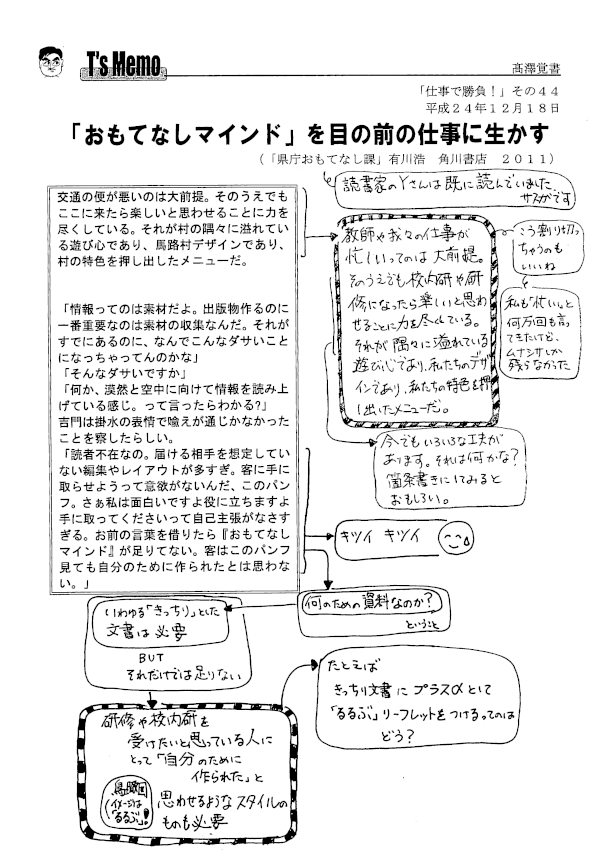 T's Memo
髙澤覚書
「仕事で勝負！」その４４
平成２４年１２月１８日
「おもてなしマインド」を目の前の仕事に生かす
（「県庁おもてなし課」有川浩　角川書店　２０１１）
読書家のYさんは既に読んでいました
サスガです
交通の便が悪いのは大前提。そのうえでも
ここに来たら楽しいと思わせることに力を
尽くしている。それが村の隅々に溢れてい
る遊び心であり、馬路村デザインであり、
村の特色を押し出したメニューだ。
「情報ってのは素材だよ。出版物作るのに
一番重要なのは素材の収集なんだ。それが
すでにあるのに、なんでこんなダサいこと
になっちゃってんのかな」
「そんなダサいですか」
「何か、漠然と空中に向けて情報を読み上
げている感じ。って言ったらわかる?」
吉門は掛水の表情で喩えが通じかなかった
ことを察したらしい。
「読者不在なの。届ける相手を想定してい
ない編集やレイアウトが多すぎ。客に手に
取らせようって意欲がないんだ、このパン
フ。さぁ私は面白いですよ役に立ちますよ
手に取ってくださいって自己主張がなさす
ぎる。お前の言葉を借りたら『おもてなし
マインド』が足りてない。客はこのパンフ
見ても自分のために作られたとは思わな
い。」
教師や我々の仕事が
忙しいってのは大前提。
そのうえでも校内研や研
修になったら楽しいと思わ
せることに力を尽くしている。
それが隅々に溢れている
遊び心であり、私たちのデザ
インであり、私たちの特色を押
し出したメニューだ。
こう割り切っ
ちゃうのも
いいね
私も「忙しい」と
何万回も言っ
てきたけど、
ムナシサしか
残らなかった
今でもいろいろな工夫が
あります。それは何かな?
箇条書きにしてみると
おもしろい。
キツイ キツイ
何のための資料なのか?
ということ
いわゆる「きっちり」とした
文書は必要
BUT
それだけでは足りない
たとえば
きっちり文書にプラスαとして
「るるぶ」リーフレットをつけるってのは
どう?
研修や校内研を
受けたいと思っている人に
とって「自分のために
作られた」と
思わせるようなスタイルの
ものも必要
鳥瞰図
イメージは
「るるぶ」!